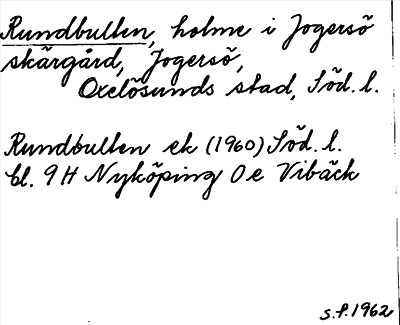 Rundbullen, holme i Jogersö
skärgård, Jogersö,
Oxelösunds stad, Söd. l.
Rundbullen ek (1960) Söd. l.
bl. 9H Nyköping Oe Vibäck
s.f. 1962